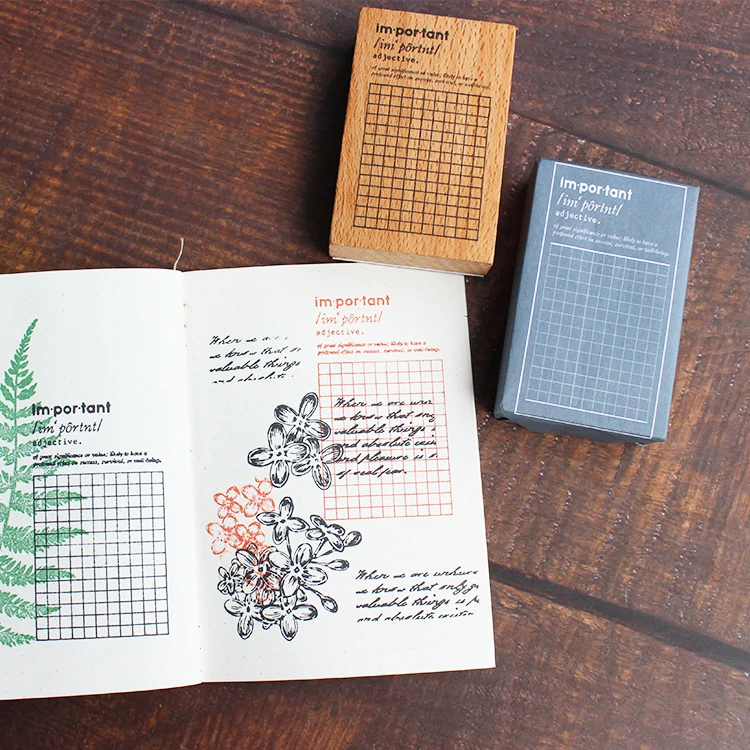 im·por·tant
/imˈpôrtnt/
adjective.
of great significance or value; likely to have a
profound effect on success, survival, or well-being.
im·por·tant
/imˈpôrtnt/
adjective.
of great significance or value; likely to have a
profound effect on success, survival, or well-being.
im·por·tant
/imˈpôrtnt/
adjective.
of great significance or value; likely to have a
profound effect on success, survival, or well-being.
im·por·tant
/imˈpôrtnt/
adjective.
of great significance or value; likely to have a
profound effect on success, survival, or well-being.
When we a
we know that
valuable things
and absolute
When we are
we know that only
valuable things
and absolute
and pleasure is
of real
When we are
we know that only
valuable things is
and absolute